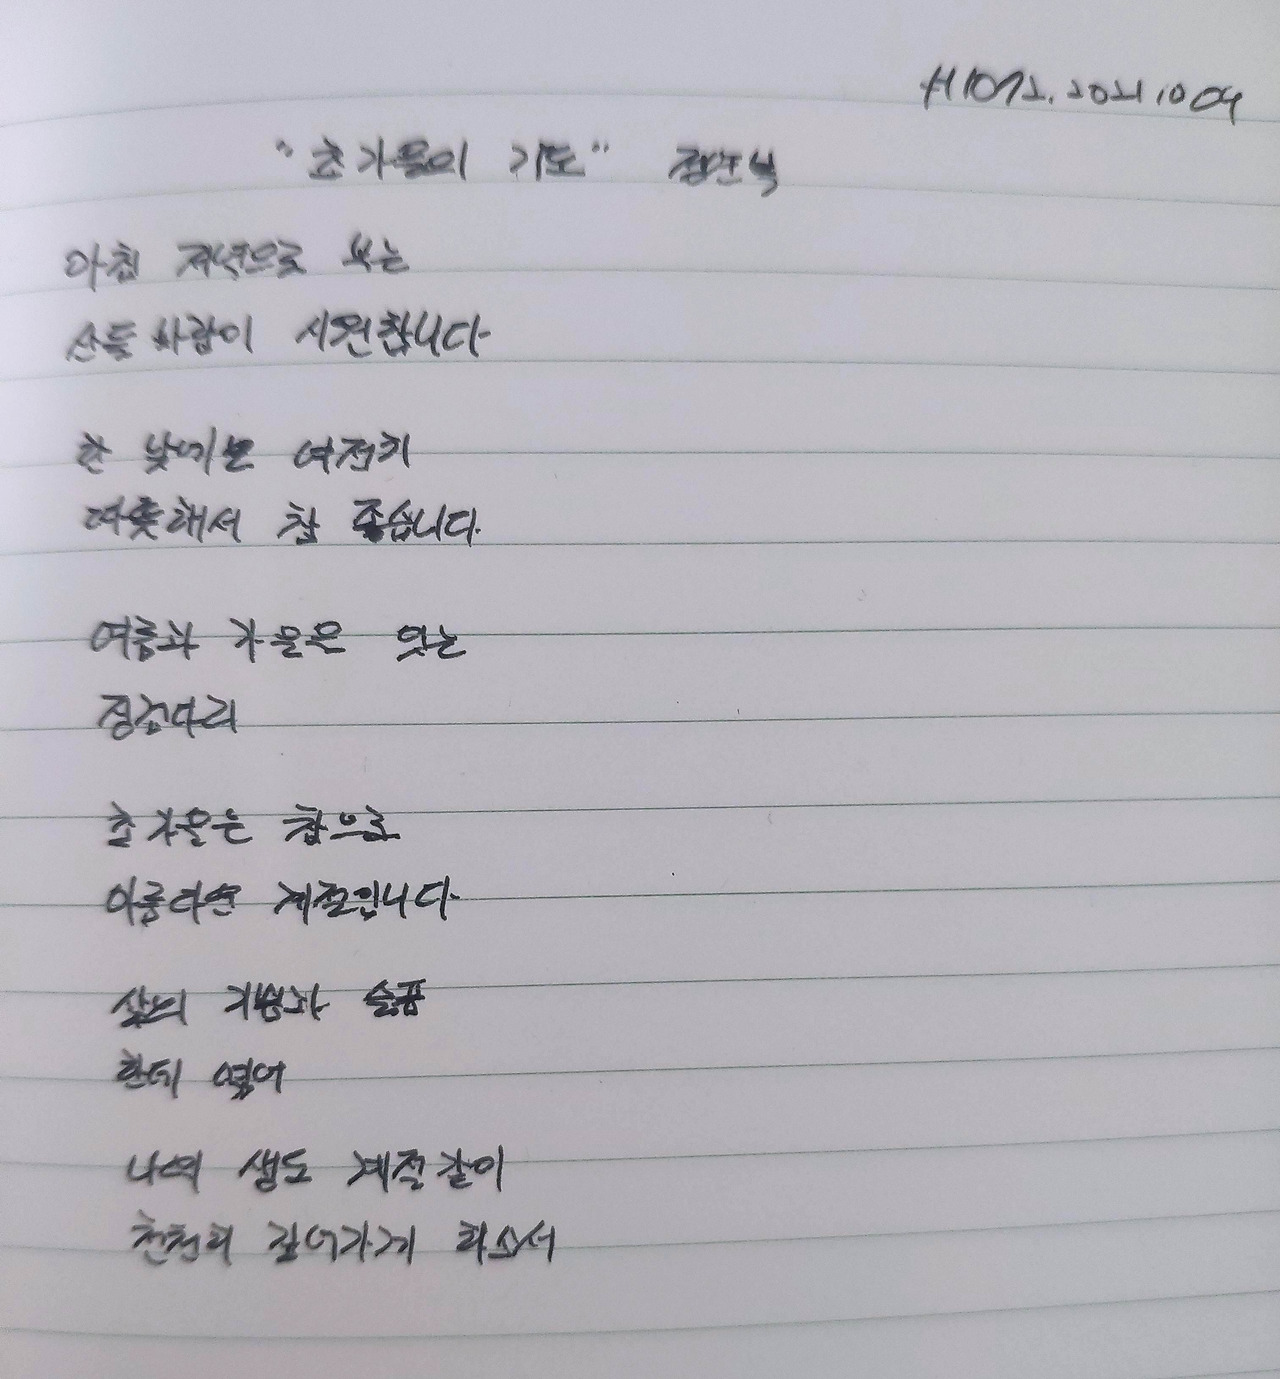 #1072. 2021 10 04
"초가을의 기도" 정연복
아침 저녁으로 부는
산들 바람이 시원합니다
한 낮에는 여전히
따뜻해서 참 좋습니다.
여름과 가을은 잇는
징검다리
초가을은 참으로
아름다운 계절입니다.
삶의 기쁨과 슬픔
한데 엮어
나의 생도 계절같이
천천히 깊어가게 하소서